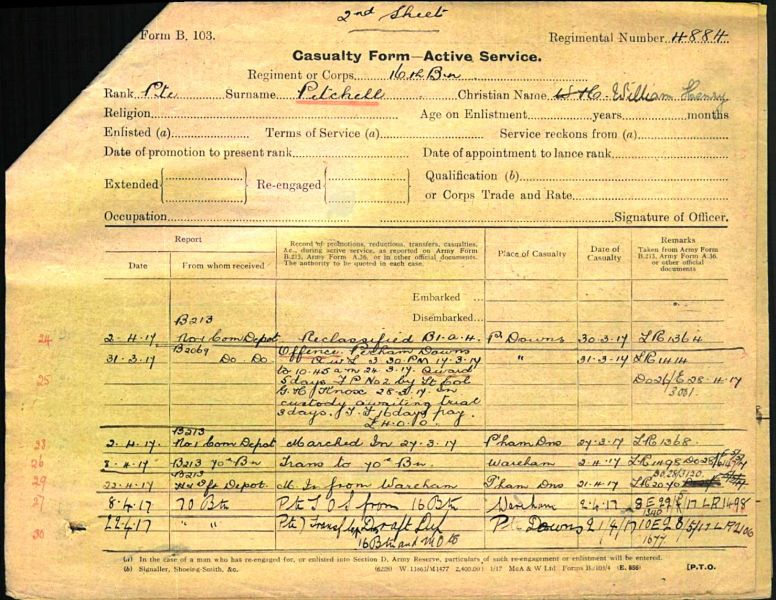 2nd Sheet
Form B. 103.
Regimental Number 4884
Casualty Form—Active Service.
Regiment or Corps 16th Bn
Rank Pte Surname Pitchell Christian Name W.H. William Henry
Religion Age on Enlistment years months
Enlisted (a) Terms of Service (a) Service reckons from (a)
Date of promotion to present rank Date of appointment to lance rank
Extended Re-engaged Qualification (b)
or Corps Trade and Rate
Occupation Signature of Officer.
Report
Date From whom received
Record of promotions, reductions, transfers, casualties, &c., during active service, as reported on Army Form B.213, Army Form A.36, or in other official documents. The authority to be quoted in each case.
Place of Casualty
Date of Casualty
Remarks
Taken from Army Form B.213, Army Form A.36, or other official documents
Embarked
Disembarked
B213
24 2-4-17 No 1 Com Depot Reclassified B1.a.4. P Downs 30-3-17 LR 1364
B2069 Offence Perham Downs
31-3-17 Do. Do. A W L 3.30 PM 17-3-17 " 31-3-17 LR 1414
to 10.45 am 24.3.17. Award Do 26/E 28-4-17
25 5 days F P No 2 by Lt Col
G. H. Knox 28-3-17. In
custody awaiting trial
3 days. T. F. 16 days pay.
£4.0.0.
B213
28 2-4-17 No 1 Com Depot Marched In 27-3-17 P'ham Dns 27-3-17 LR 1368.
26 8-4-17 B213 70th Bn Trans to 70th Bn. Wareham 2-4-17 LR 1498
B213
29 22-4-17 Depot M. In from Wareham P'ham Dns 21-4-17 LR 2070
27 8/4/17 70 Btn Pte T O S from 16 Btn 2-4-17 LR 1498
1340
30 22-4-17 " " 16 Btn and Downs 21/4/17 10E 28/5/17
1677
(a) In the case of a man who has re-engaged for, or enlisted into Section D, Army Reserve, particulars of such re-engagement or enlistment will be entered.
(b) Signaller, Shoeing-Smith, &c. W 11861/M1477 2,400,000 1/17 McA & W Ltd Forms B./103/4 (E. 856) [P.T.O.